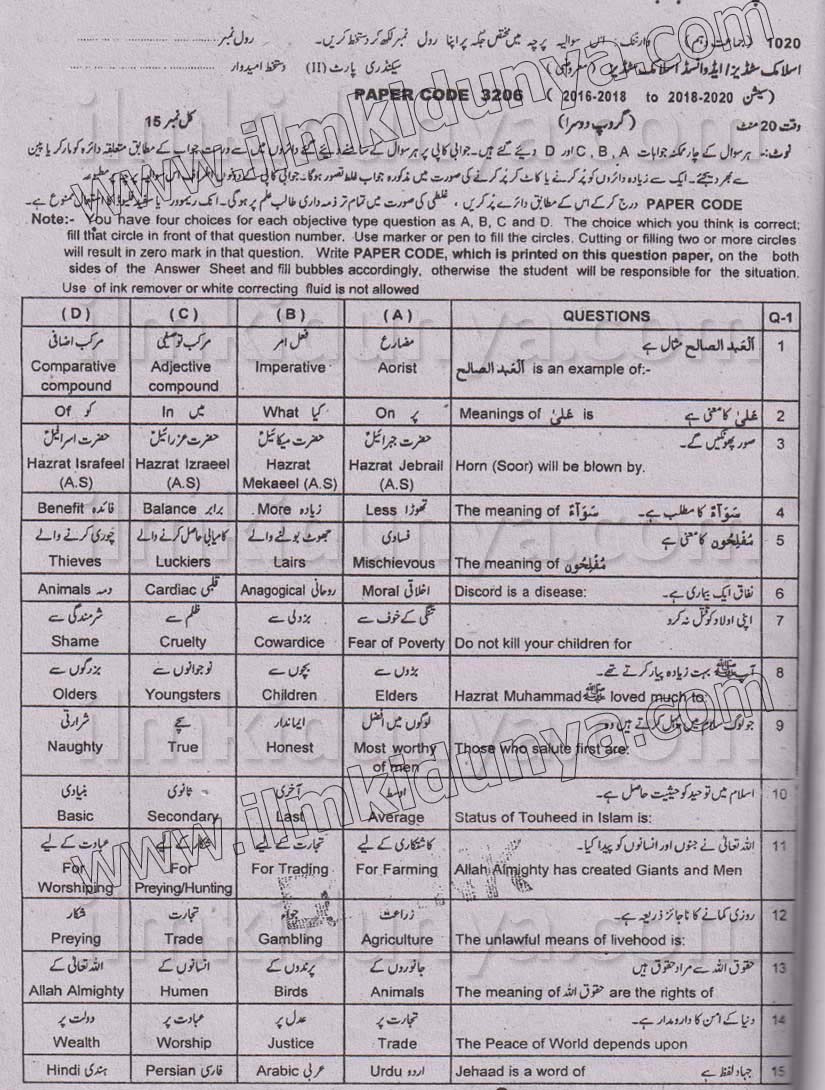 1020 (جماعت دہم) وارننگ: اس سوالیہ پرچہ میں مختص جگہ پر اپنا رول نمبر لکھ کر دستخط کریں۔ رول نمبر
اسلامک سٹڈیز/ایڈوانسڈ اسلامک سٹڈیز (معروضی) سیکنڈری پارٹ (II) دستخط امیدوار
PAPER CODE 3206 (سیشن 2016-2018 to 2018-2020)
وقت 20 منٹ (گروپ دوسرا) کل نمبر 15
نوٹ:- ہر سوال کے چار ممکنہ جوابات C, B, A اور D دیئے گئے ہیں۔ جوابی کاپی پر ہر سوال کے سامنے دیئے گئے دائروں میں سے درست جواب کے مطابق متعلقہ دائرہ کو مارکر یا پین
سے بھر دیجئے۔ ایک سے زیادہ دائروں کو پُر کرنے یا کاٹ کر پُر کرنے کی صورت میں مذکورہ جواب غلط تصور ہوگا۔ جوابی کاپی کے دونوں اطراف اس سوالیہ پرچہ پر مطبوعہ
PAPER CODE درج کر کے اس کے مطابق دائرے پُر کریں، غلطی کی صورت میں تمام تر ذمہ داری طالب علم پر ہوگی۔ انک ریموور یا سفید فلیوڈ کا استعمال ممنوع ہے۔
Note:- You have four choices for each objective type question as A, B, C and D. The choice which you think is correct;
fill that circle in front of that question number. Use marker or pen to fill the circles. Cutting or filling two or more circles
will result in zero mark in that question. Write PAPER CODE, which is printed on this question paper, on the both
sides of the Answer Sheet and fill bubbles accordingly, otherwise the student will be responsible for the situation.
Use of ink remover or white correcting fluid is not allowed
(D) (C) (B) (A) QUESTIONS Q-1
مرکب اضافی مرکب توصیفی فعل امر مضارع اَلعبد الصالح مثال ہے 1
Comparative compound Adjective compound Imperative Aorist اَلعبد الصالح is an example of:-
Of کو In میں What کیا On پر Meanings of عَلیٰ is عَلیٰ کا معنی ہے 2
حضرت اسرافیلؑ حضرت عزرائیلؑ حضرت میکائیلؑ حضرت جبرائیلؑ صور پھونکیں گے۔ 3
Hazrat Israfeel (A.S) Hazrat Izraeel (A.S) Hazrat Mekaeel (A.S) Hazrat Jebrail (A.S) Horn (Soor) will be blown by.
Benefit فائدہ Balance برابر More زیادہ Less تھوڑا The meaning of سَوَآءٌ سَوَآءٌ کا مطلب ہے۔ 4
چوری کرنے والے کامیابی حاصل کرنے والے جھوٹ بولنے والے فسادی مُفْلِحُون کا معنی ہے 5
Thieves Luckiers Lairs Mischievous The meaning of مُفْلِحُون
Animals دمہ Cardiac قلبی Anagogical روحانی Moral اخلاقی Discord is a disease: نفاق ایک بیماری ہے۔ 6
شرمندگی سے ظلم سے بزدلی سے تنگی کے خوف سے اپنی اولاد کو قتل نہ کرو 7
Shame Cruelty Cowardice Fear of Poverty Do not kill your children for
بزرگوں سے نوجوانوں سے بچوں سے بڑوں سے آپ ﷺ بہت زیادہ پیار کرتے تھے۔ 8
Olders Youngsters Children Elders Hazrat Muhammad ﷺ loved much to
شرارتی سچے ایماندار لوگوں میں افضل جو لوگ سلام میں پہل کرتے ہیں وہ 9
Naughty True Honest Most worthy of men Those who salute first are:
بنیادی ثانوی آخری اوسط اسلام میں توحید کو حیثیت حاصل ہے۔ 10
Basic Secondary Last Average Status of Touheed in Islam is:
عبادت کے لیے شکار کے لیے تجارت کے لیے کاشتکاری کے لیے اللہ تعالیٰ نے جنوں اور انسانوں کو پیدا کیا۔ 11
For Worshiping For Preying/Hunting For Trading For Farming Allah Almighty has created Giants and Men
شکار تجارت جواء زراعت روزی کمانے کا ناجائز ذریعہ ہے۔ 12
Preying Trade Gambling Agriculture The unlawful means of livehood is:
اللہ تعالیٰ کے انسانوں کے پرندوں کے جانوروں کے حقوق اللہ سے مراد حقوق ہیں 13
Allah Almighty Humen Birds Animals The meaning of حقوق اللہ are the rights of
دولت پر عبادت پر عدل پر تجارت پر دنیا کے امن کا دارومدار ہے۔ 14
Wealth Worship Justice Trade The Peace of World depends upon
Hindi ہندی Persian فارسی Arabic عربی Urdu اردو Jehaad is a word of جہاد لفظ ہے 15
www.ilmkidunya.com
www.ilmkidunya.com
ilmkidunya.com